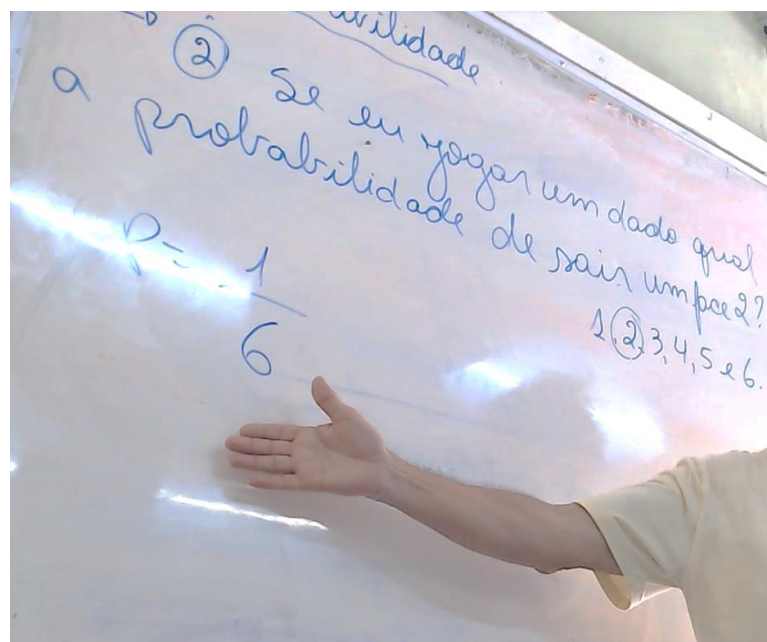 ② Se eu jogar um dado qual
a probabilidade de sair um face 2?
1, 2, 3, 4, 5 e 6.
P = 1
6